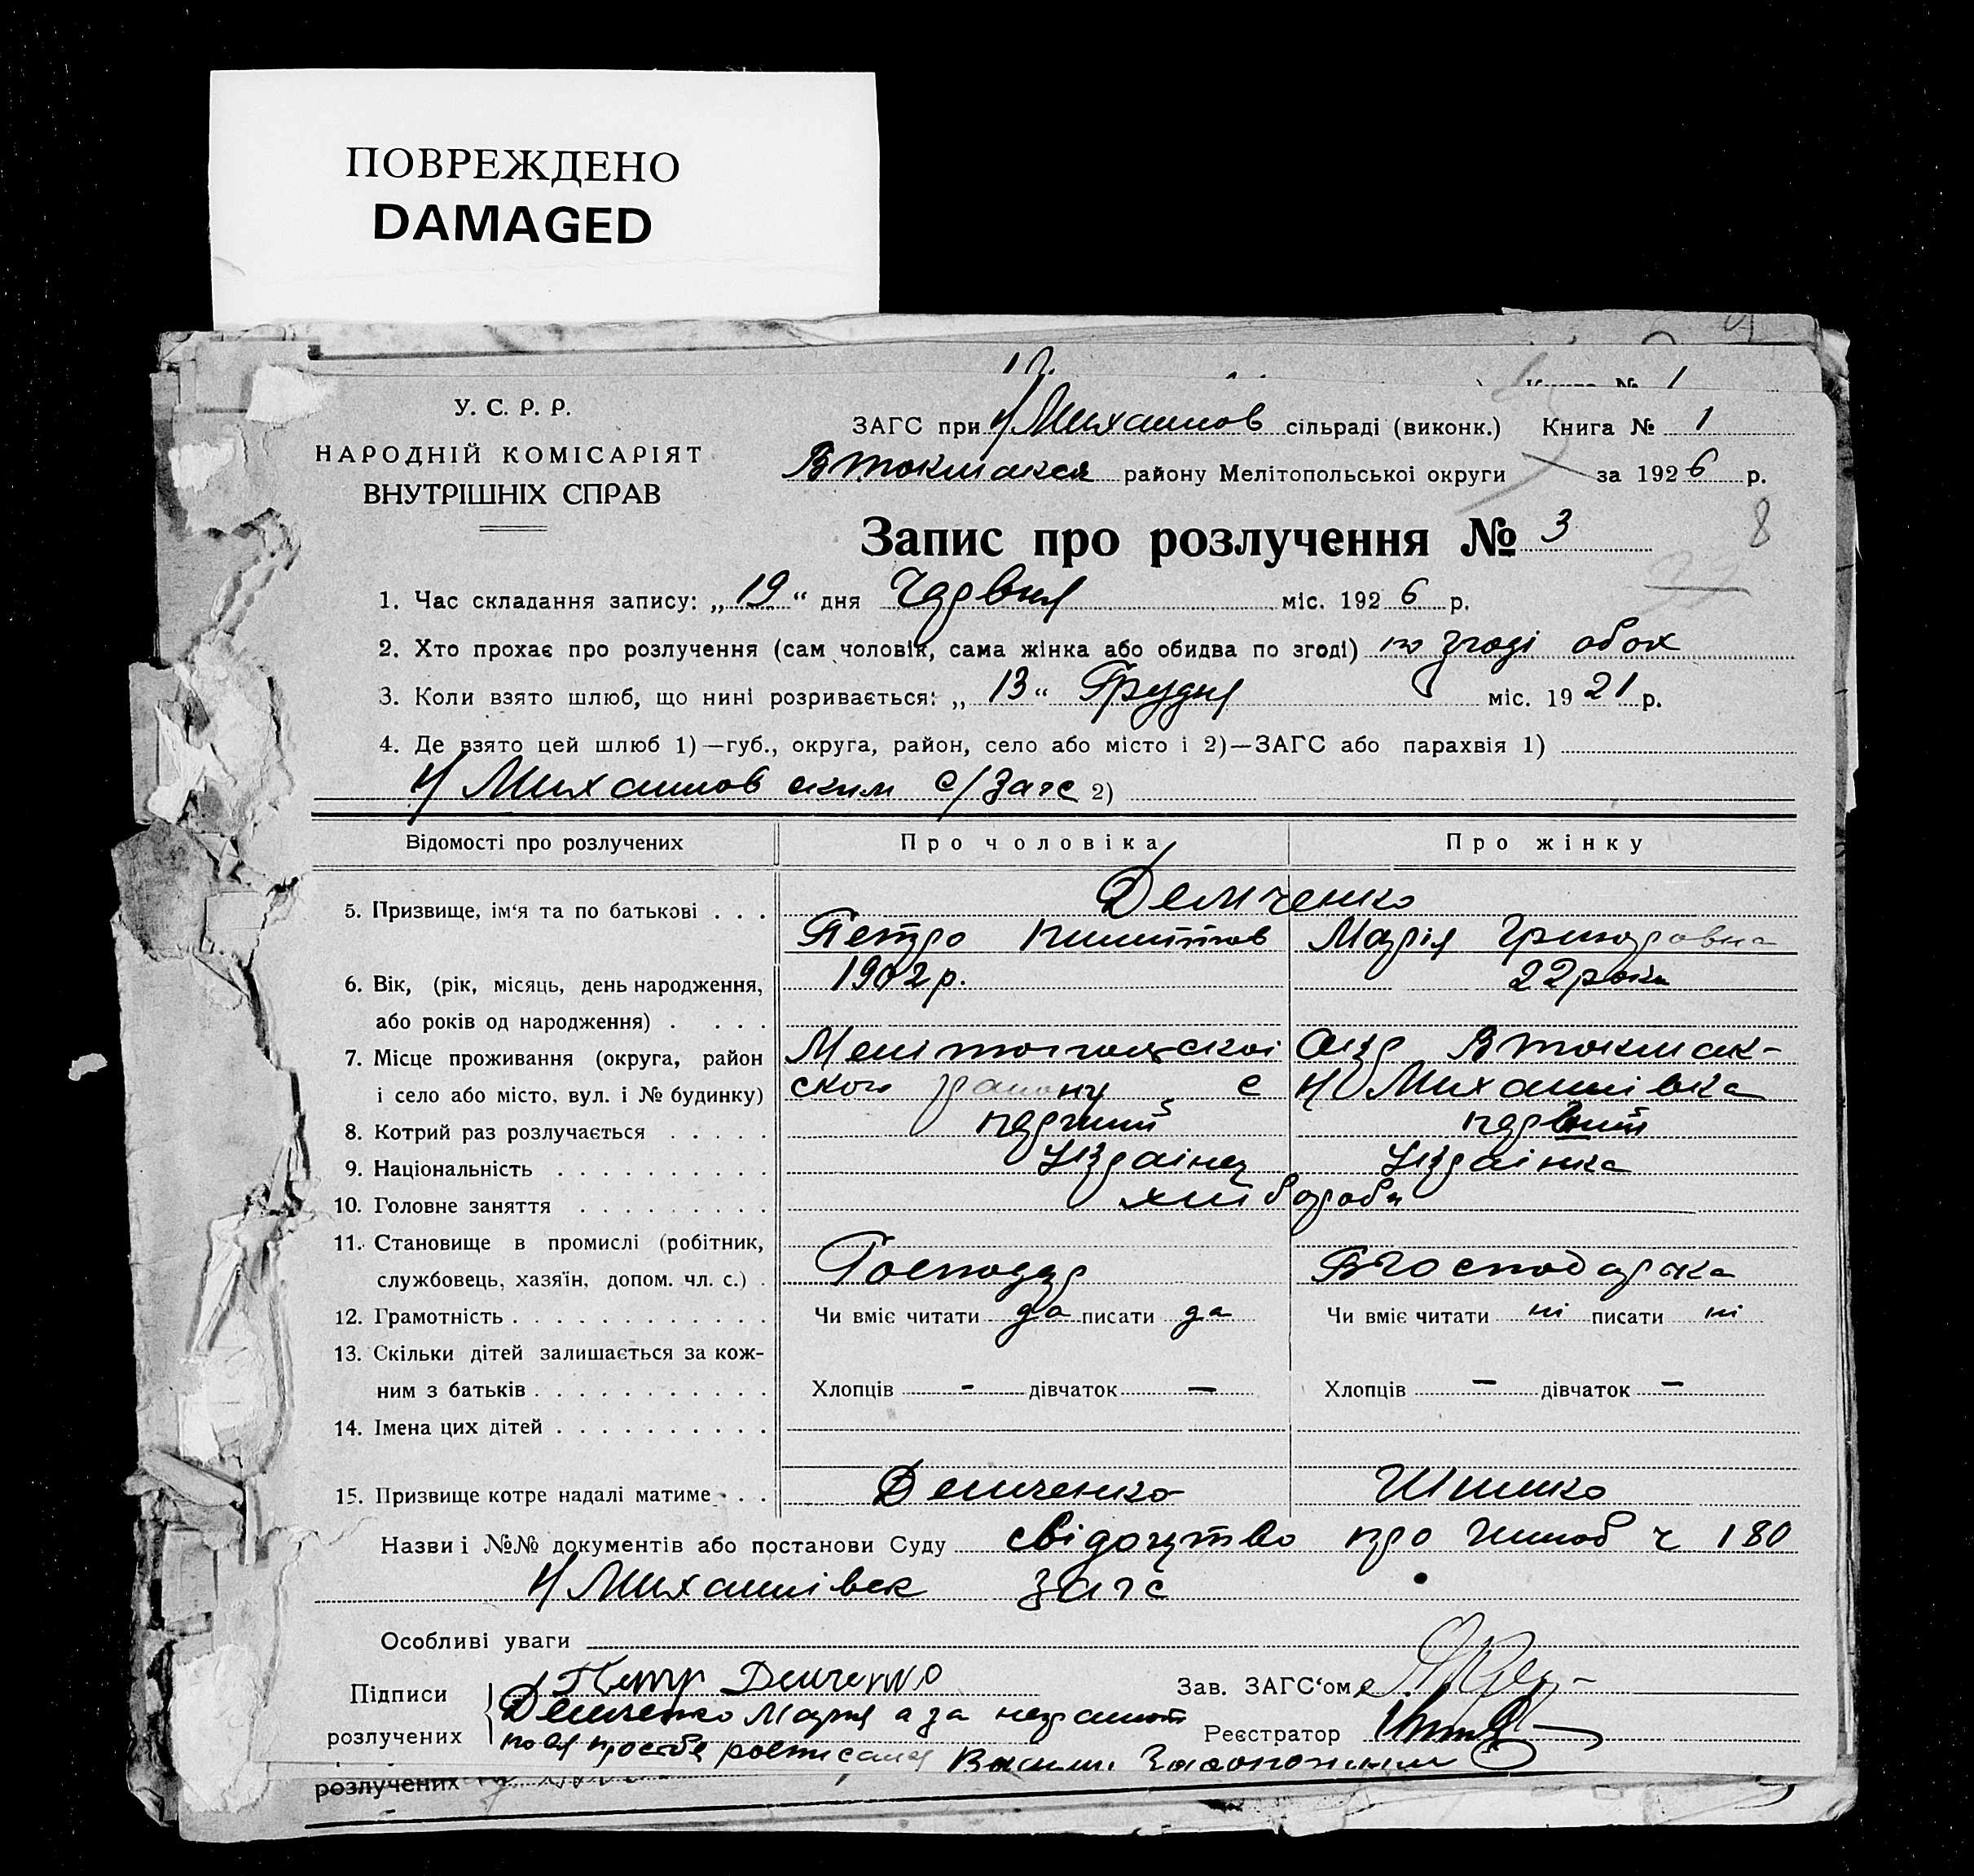 ПОВРЕЖДЕНО
DAMAGED
Книга № 1
У. С. Р. Р.
НАРОДНІЙ КОМІСАРІЯТ
ВНУТРІШНІХ СПРАВ
ЗАГС при Н/Михайлов сільраді (виконк.) Книга № 1
В токмакся району Мелітопольської округи за 1926 р.
Запис про розлучення № 3
8
1. Час складання запису: „19“ дня Червня міс. 1926 р.
2. Хто прохає про розлучення (сам чоловік, сама жінка або обидва по згоді) по згоді обох
3. Коли взято шлюб, що нині розривається: „13“ Грудня міс. 1921 р.
4. Де взято цей шлюб 1)—губ., округа, район, село або місто і 2)—ЗАГС або парахвія 1)
Н/Михайлов ским с/Загс 2)
Відомості про розлучених Про чоловіка Про жінку
5. Призвище, ім'я та по батькові . . . Демченко
Петро Пилипов Марія Григоровна
6. Вік, (рік, місяць, день народження, 1902 р. 22 роки
або років од народження) . . . .
7. Місце проживання (округа, район Мелітопольскоі Окр Втокмак-
і село або місто, вул. і № будинку) ского району с Н/Михайлівка
8. Котрий раз розлучається . . . . . перший первий
9. Національність . . . . . . . . . . Украінец Украінка
10. Головне заняття . . . . . . . . . хліборобы
11. Становище в промислі (робітник,
службовець, хазяїн, допом. чл. с.) . Господар Вгосподарска
12. Грамотність . . . . . . . . . . . . Чи вміє читати да писати да Чи вміє читати ні писати ні
13. Скільки дітей залишається за кож-
ним з батьків . . . . . . . . . . . Хлопців - дівчаток — Хлопців — дівчаток —
14. Імена цих дітей . . . . . . . . . .
15. Призвище котре надалі матиме . . . Демченко Шишко
Назви і №№ документів або постанови Суду свідоцтво про Шлюб ч 180
Н/Михайлівск загс
Особливі уваги
Підписи Петр Демченко Зав. ЗАГС'ом
розлучених Демченко Мария а за неграмот Реєстратор
ной просьбе росписался Васили
розлучених